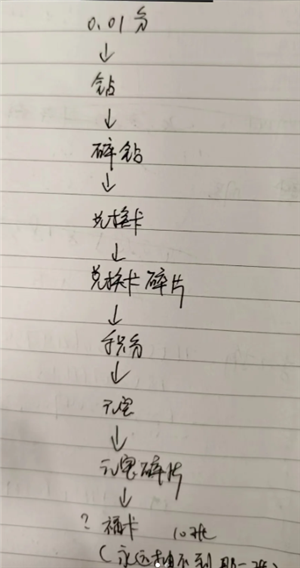 0.01分
↓
钻
↓
碎钻
↓
兑换卡
↓
兑换卡碎片
↓
积分
↓
元宝
↓
元宝碎片
↓
? 福卡
(永远抽不到那一张)